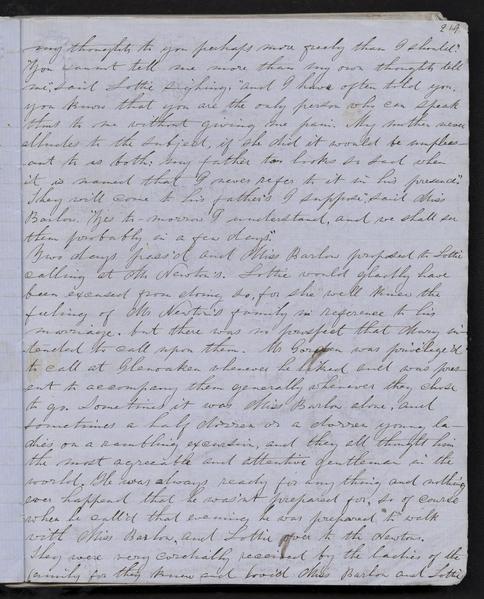 219
my thoughts to you perhaps more freely than I should."
"You cannot tell me more than my own thoughts tell
me," said Lottie sighing, "and I have often told you,
you know that you are the only person who can speak
thus to me without giving me pain. My mother never
alludes to the subject, if she did it would be unpleas-
ant to us both; my father too looks so sad when
it is named that I never refer to it in his presence."
They will come to his father's I suppose" said Miss
Barlow. "Yes to-morrow I understand, and we shall see
them probably in a few days."
Two days pass'd and Miss Barlow proposed to Lottie
calling at Mr Newton's. Lottie would gladly have
been excused from doing so, for she well knew the
feeling of Mr Newton's family in reference to his
marriage. but there was no prospect that Mary in-
tended to call upon them. Mr Gordon was privilege'd
to call at Glenoaken whenever he liked and was pres-
ent to accompany them generally whenever they chose
to go. Sometimes it was Miss Barlow alone, and
sometimes a half dozzen or a dozzen young la-
dies on a rambling excursion, and they all thought him
the most agreeable and attentive gentleman in the
world, He was always ready for any thing and nothing
ever happend that he wasn't prepared for, so of course
when he call'd that evening he was prepared to walk
with Miss Barlow and Lottie over to the Newtons.
They were very cordially received by the ladies of the
family for they knew and lov'd Miss Barlow and Lottie